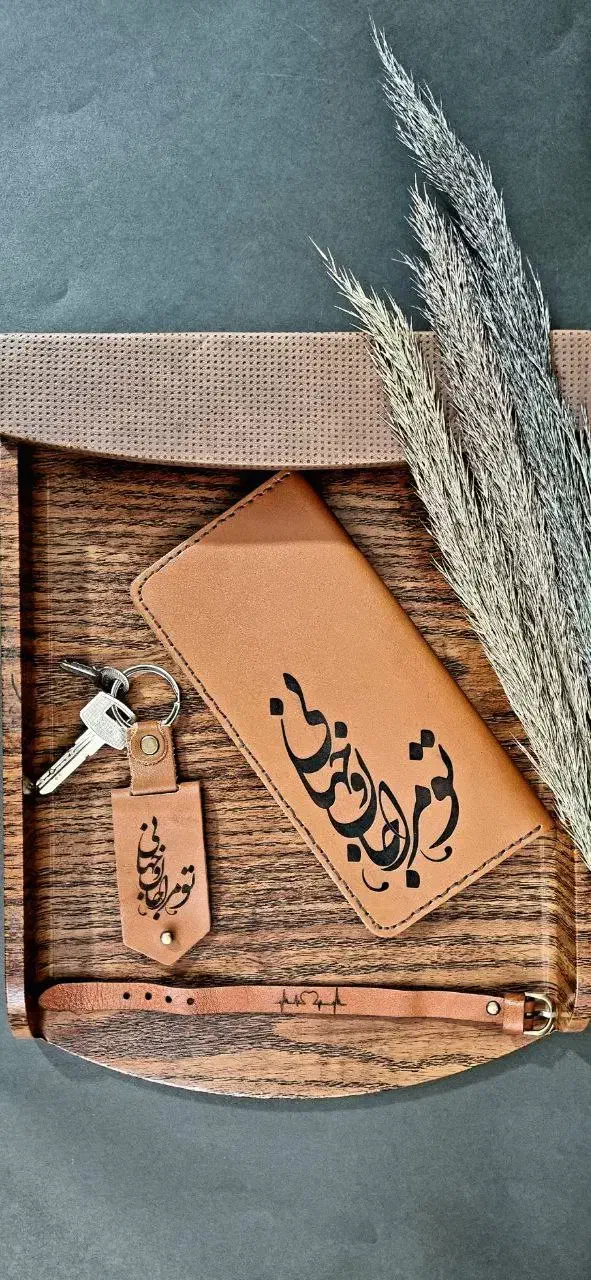 تو مرا جان و جهانی
تو مرا جان و جهانی